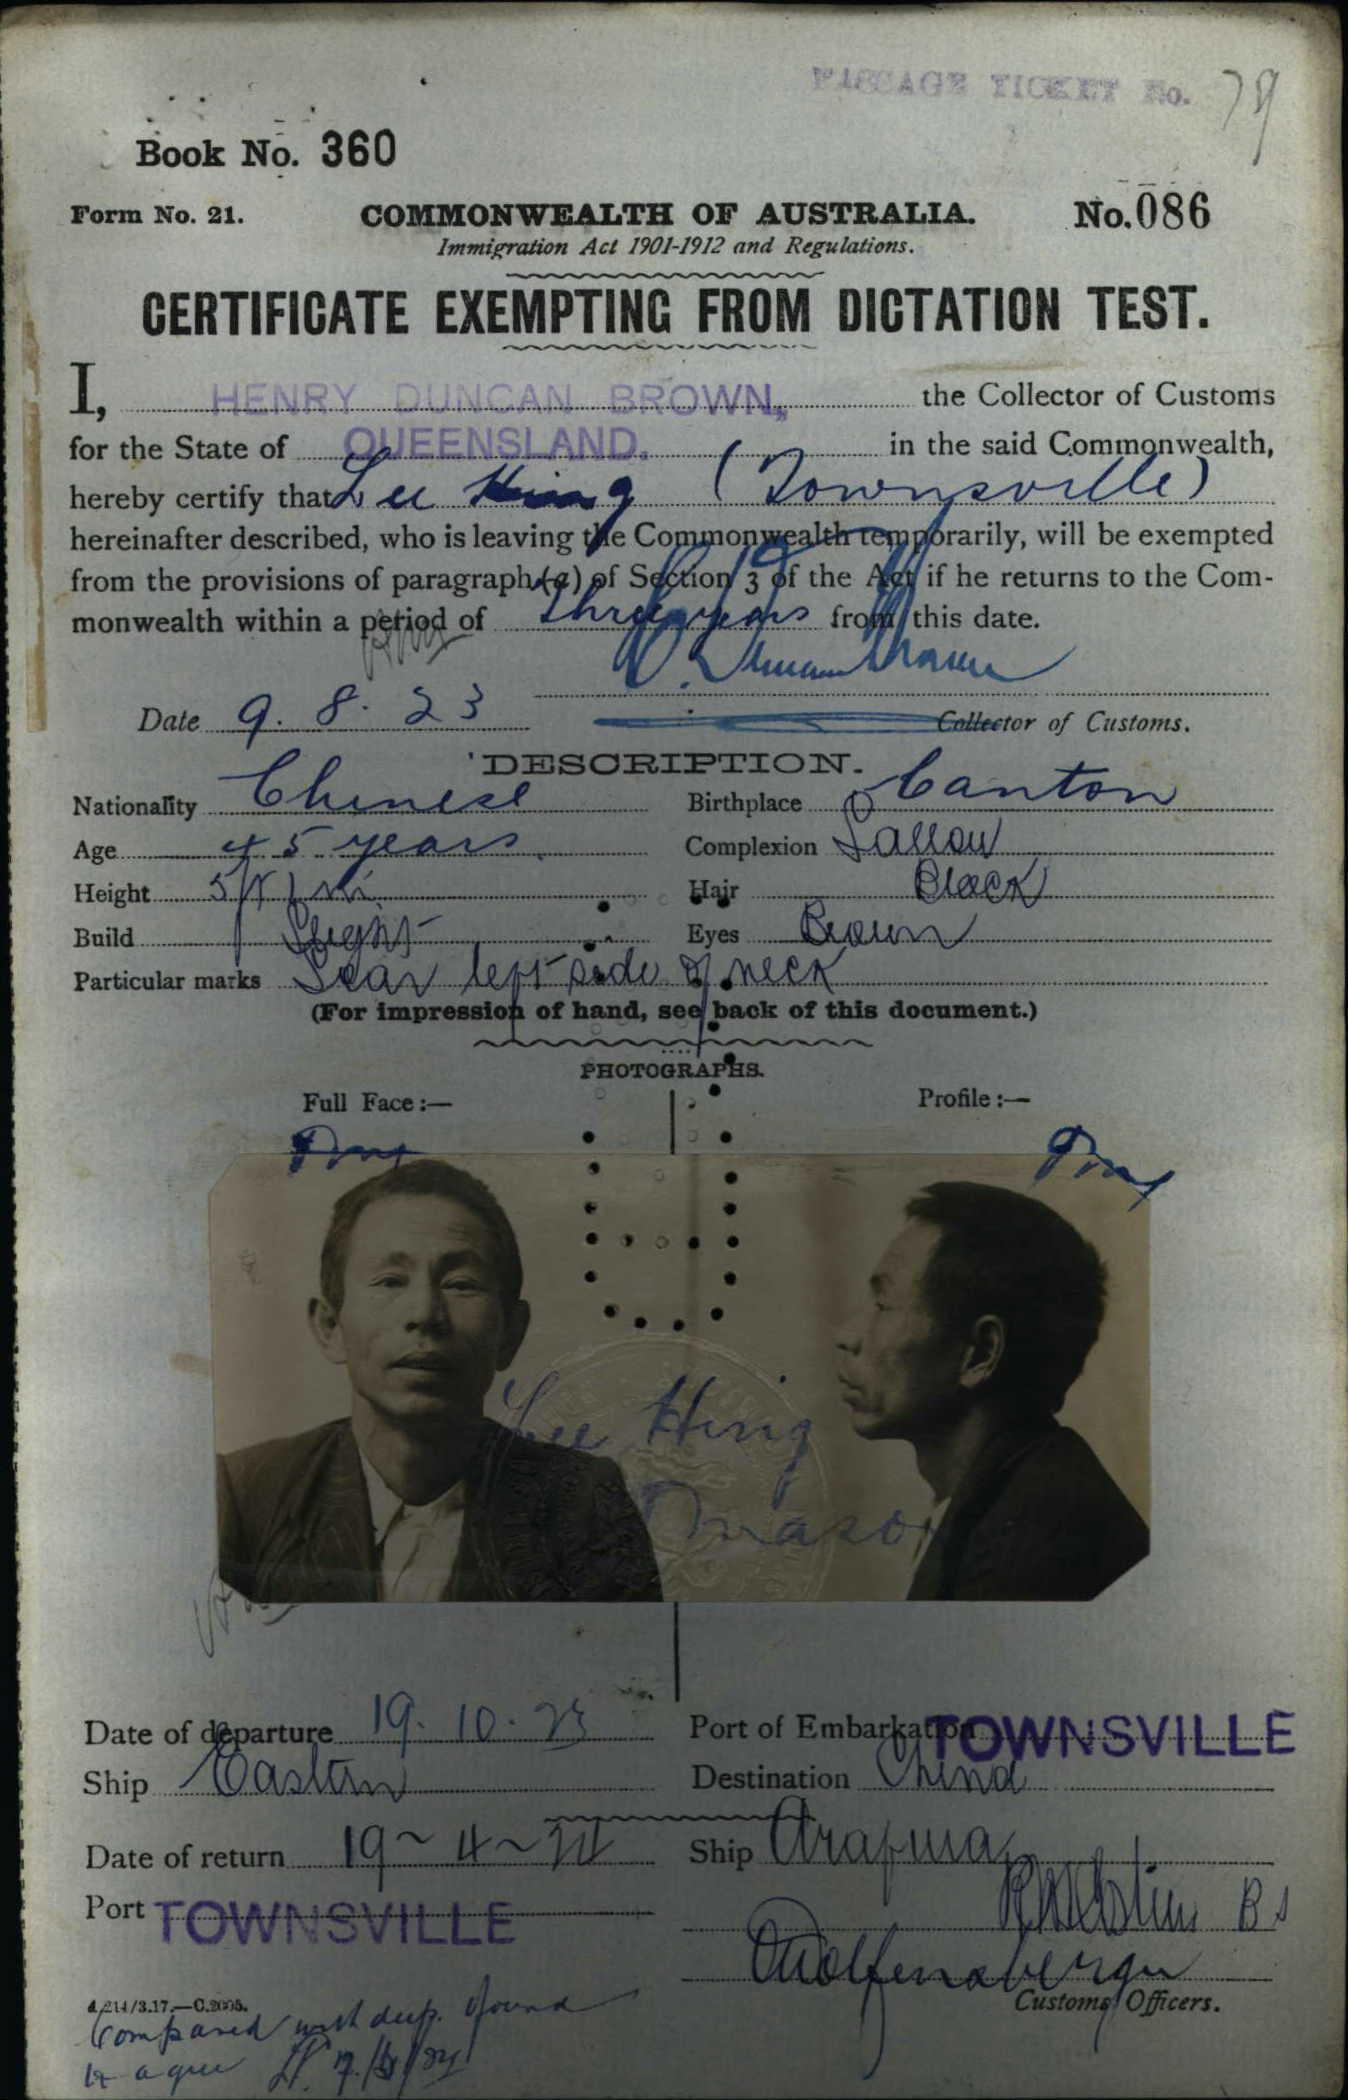 PASSAGE TICKET No. 79
Book No. 360
Form No. 21. COMMONWEALTH OF AUSTRALIA. No. 086
Immigration Act 1901-1912 and Regulations.
CERTIFICATE EXEMPTING FROM DICTATION TEST.
I, HENRY DUNCAN BROWN, the Collector of Customs
for the State of QUEENSLAND. in the said Commonwealth,
hereby certify that Lee Hing (Townsville)
hereinafter described, who is leaving the Commonwealth temporarily, will be exempted
from the provisions of paragraph (a) of Section 3 of the Act if he returns to the Com-
monwealth within a period of three years from this date.
Date 9. 8. 23 Collector of Customs.
DESCRIPTION.
Nationality Chinese Birthplace Canton
Age 45 years. Complexion Sallow
Height 5ft 1 in. Hair Black
Build Slight Eyes Brown
Particular marks Scar left side of neck
(For impression of hand, see back of this document.)
PHOTOGRAPHS.
Full Face:— Profile:—
Lee Hing
Date of departure 19. 10. 23 Port of Embarkation TOWNSVILLE
Ship Eastern Destination China
Date of return 19~4~24 Ship Arafura
Port TOWNSVILLE
Customs Officers.
Compared with dup. found
to agree